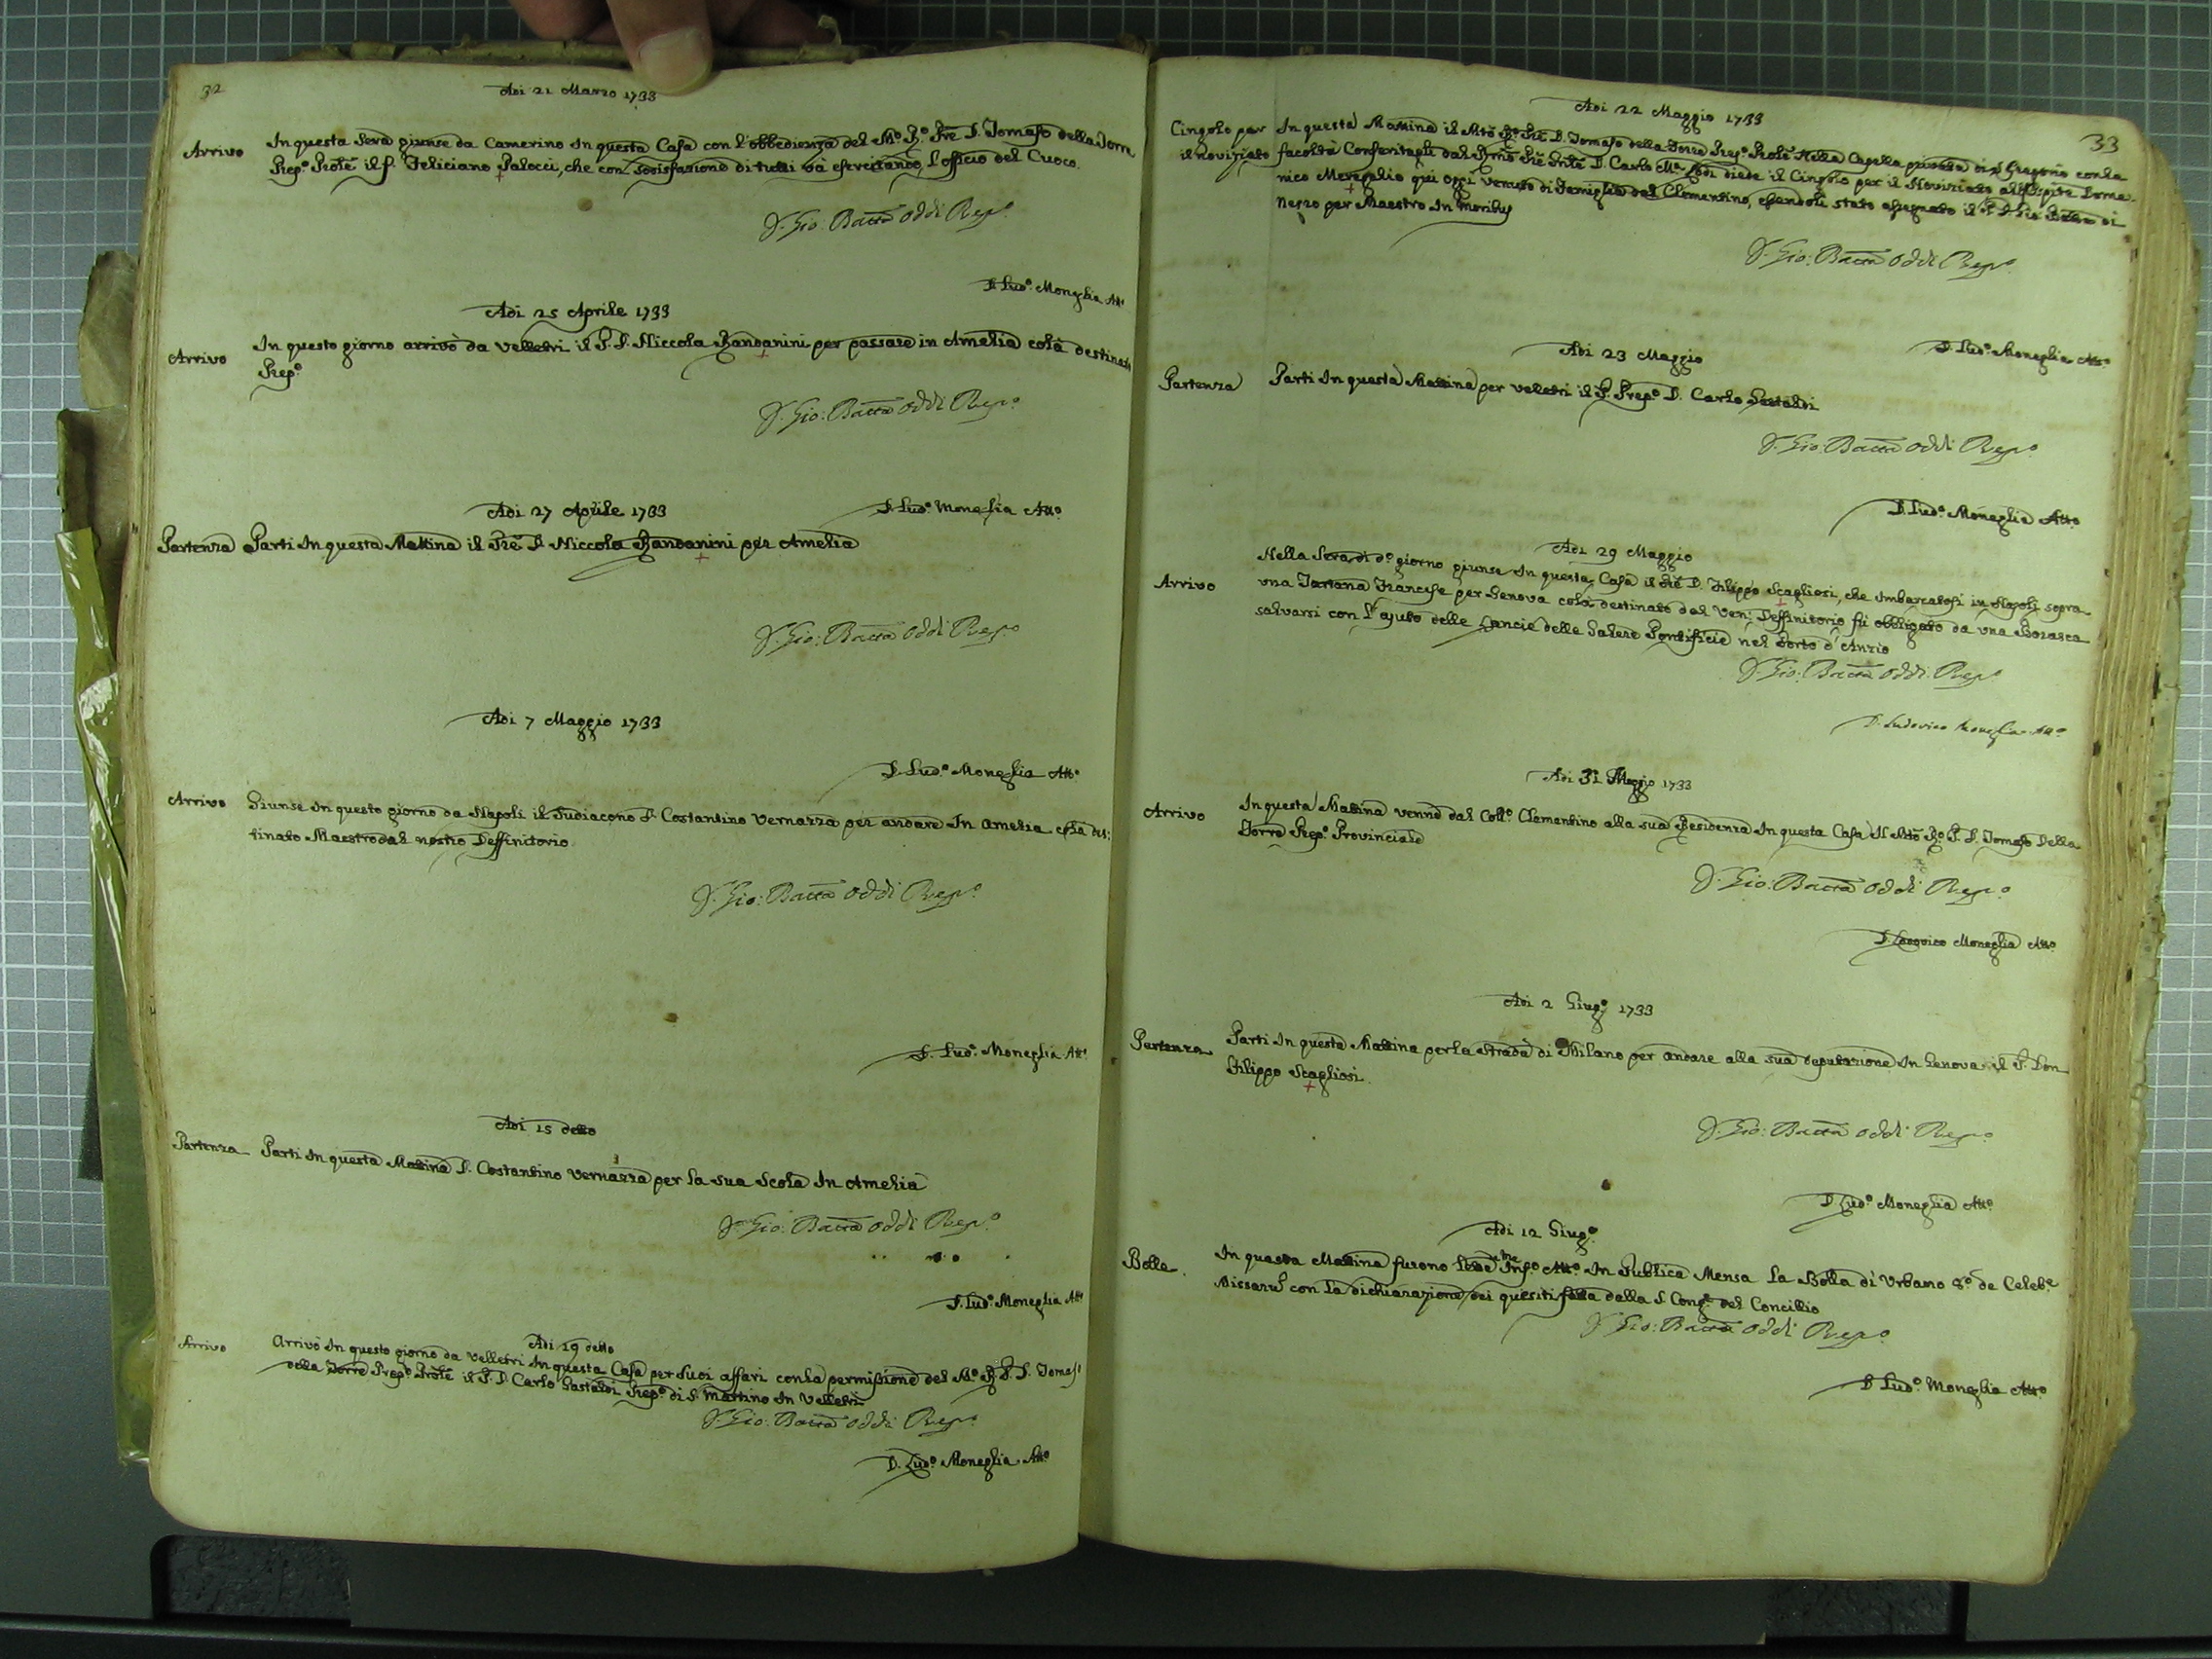 32
Adi 21 Marzo 1733
Arrivo
In questa sera giunse da Camerino in questa Casa con l'obbedienza del M.º R.º Pre D. Tomaso della Torre
Prep.º Prole il f. Feliciano Palocci, che con sodisfazione di tutti và esercitando l'officio del Cuoco.
D. Gio: Batta Oddi Prep.º
D. Lud.º Moneglia Att.º
Adi 25 Aprile 1733
Arrivo
In questo giorno arrivò da Velletri il P. D. Niccola Bandanini per passare in Amelia colà destinato
Prep.º
D. Gio: Batta Oddi Prep.º
D. Lud.º Moneglia Att.º
Adi 27 Aprile 1733
Partenza
Parti in questa Mattina il Pre D. Niccola Bandanini per Amelia
D. Gio: Batta Oddi Prep.º
D. Lud.º Moneglia Att.º
Adi 7 Maggio 1733
Arrivo
Giunse in questo giorno da Napoli il Sudiacono D. Costantino Vernazza per andare in Amelia colà des:
tinato Maestro dal nostro Deffinitorio
D. Gio: Batta Oddi Prep.º
D. Lud.º Moneglia Att.º
Adi 15 detto
Partenza
Parti in questa Mattina D. Costantino Vernazza per la sua Scola in Amelia
D. Gio: Batta Oddi Prep.º
D. Lud.º Moneglia Att.º
Adi 19 detto
Arrivo
Arrivò in questo giorno da Velletri in questa Casa per suoi affari con la permissione del M.º R. P. D. Tomaso
della Torre Prep.º Prole il P. D. Carlo Gastaldi Prep.º di S. Martino in Velletri
D. Gio: Batta Oddi Prep.º
D. Lud.º Moneglia Att.º
33
Adi 22 Maggio 1733
Cingolo per
il Noviziato
In questa Mattina il Mto R.º Pre D. Tomaso della Torre Prep.º Prole nella Capella privata di S. Gregorio con la
facoltà Conferitagli dal Rmo Pre Gnle D. Carlo M.ª Lodi diede il Cingolo per il Noviziato all'Ospite Dome-
nico Mereghio qui oggi venuto di Famiglia dal Clementino, essendoli stato assegnato il P. D. Gio Batta di
Negro per Maestro in moribus
D. Gio: Batta Oddi Prep.º
D. Lud.º Moneglia Att.º
Adi 23 Maggio
Partenza
Parti in questa Mattina per Velletri il P. Prep.º D. Carlo Gastaldi
D. Gio: Batta Oddi Prep.º
D. Lud.º Moneglia Att.º
Adi 29 Maggio
Arrivo
Nella Sera di d.º giorno giunse in questa Casa il Pre D. Filippo Scagliosi, che imbarcatosi in Napoli sopra
una Tartana Francese per Genova colà destinato dal Ven: Deffinitorio fù obbligato da una Borasca
salvarsi con l'ajuto delle Lancie delle Galere Pontificie nel Porto d'Anzio
D. Gio: Batta Oddi Prep.º
D. Ludovico Moneglia Att.º
Adi 31 Maggio 1733
Arrivo
In questa Mattina venne dal Coll.º Clementino alla sua Residenza in questa Casa il Mto R.º P. D. Tomaso Della
Torre Prep.º Provinciale
D. Gio: Batta Oddi Prep.º
D. Ludovico Moneglia Att.º
Adi 2 Giug.º 1733
Partenza
Parti in questa Mattina per la strada di Milano per andare alla sua deputazione in Genova il P. Don
Filippo Scagliosi
D. Gio: Batta Oddi Prep.º
D. Lud.º Moneglia Att.º
Adi 12 Giug.º
Bolle
In questa Mattina furono lette Inf.º Att.º in Publica Mensa la Bolla di Urbano 8.º de Celeb.e
Missaru con la dichiarazione dei quesiti fatta dalla S. Cong.e del Concilio
D. Gio: Batta Oddi Prep.º
D. Lud.º Moneglia Att.º